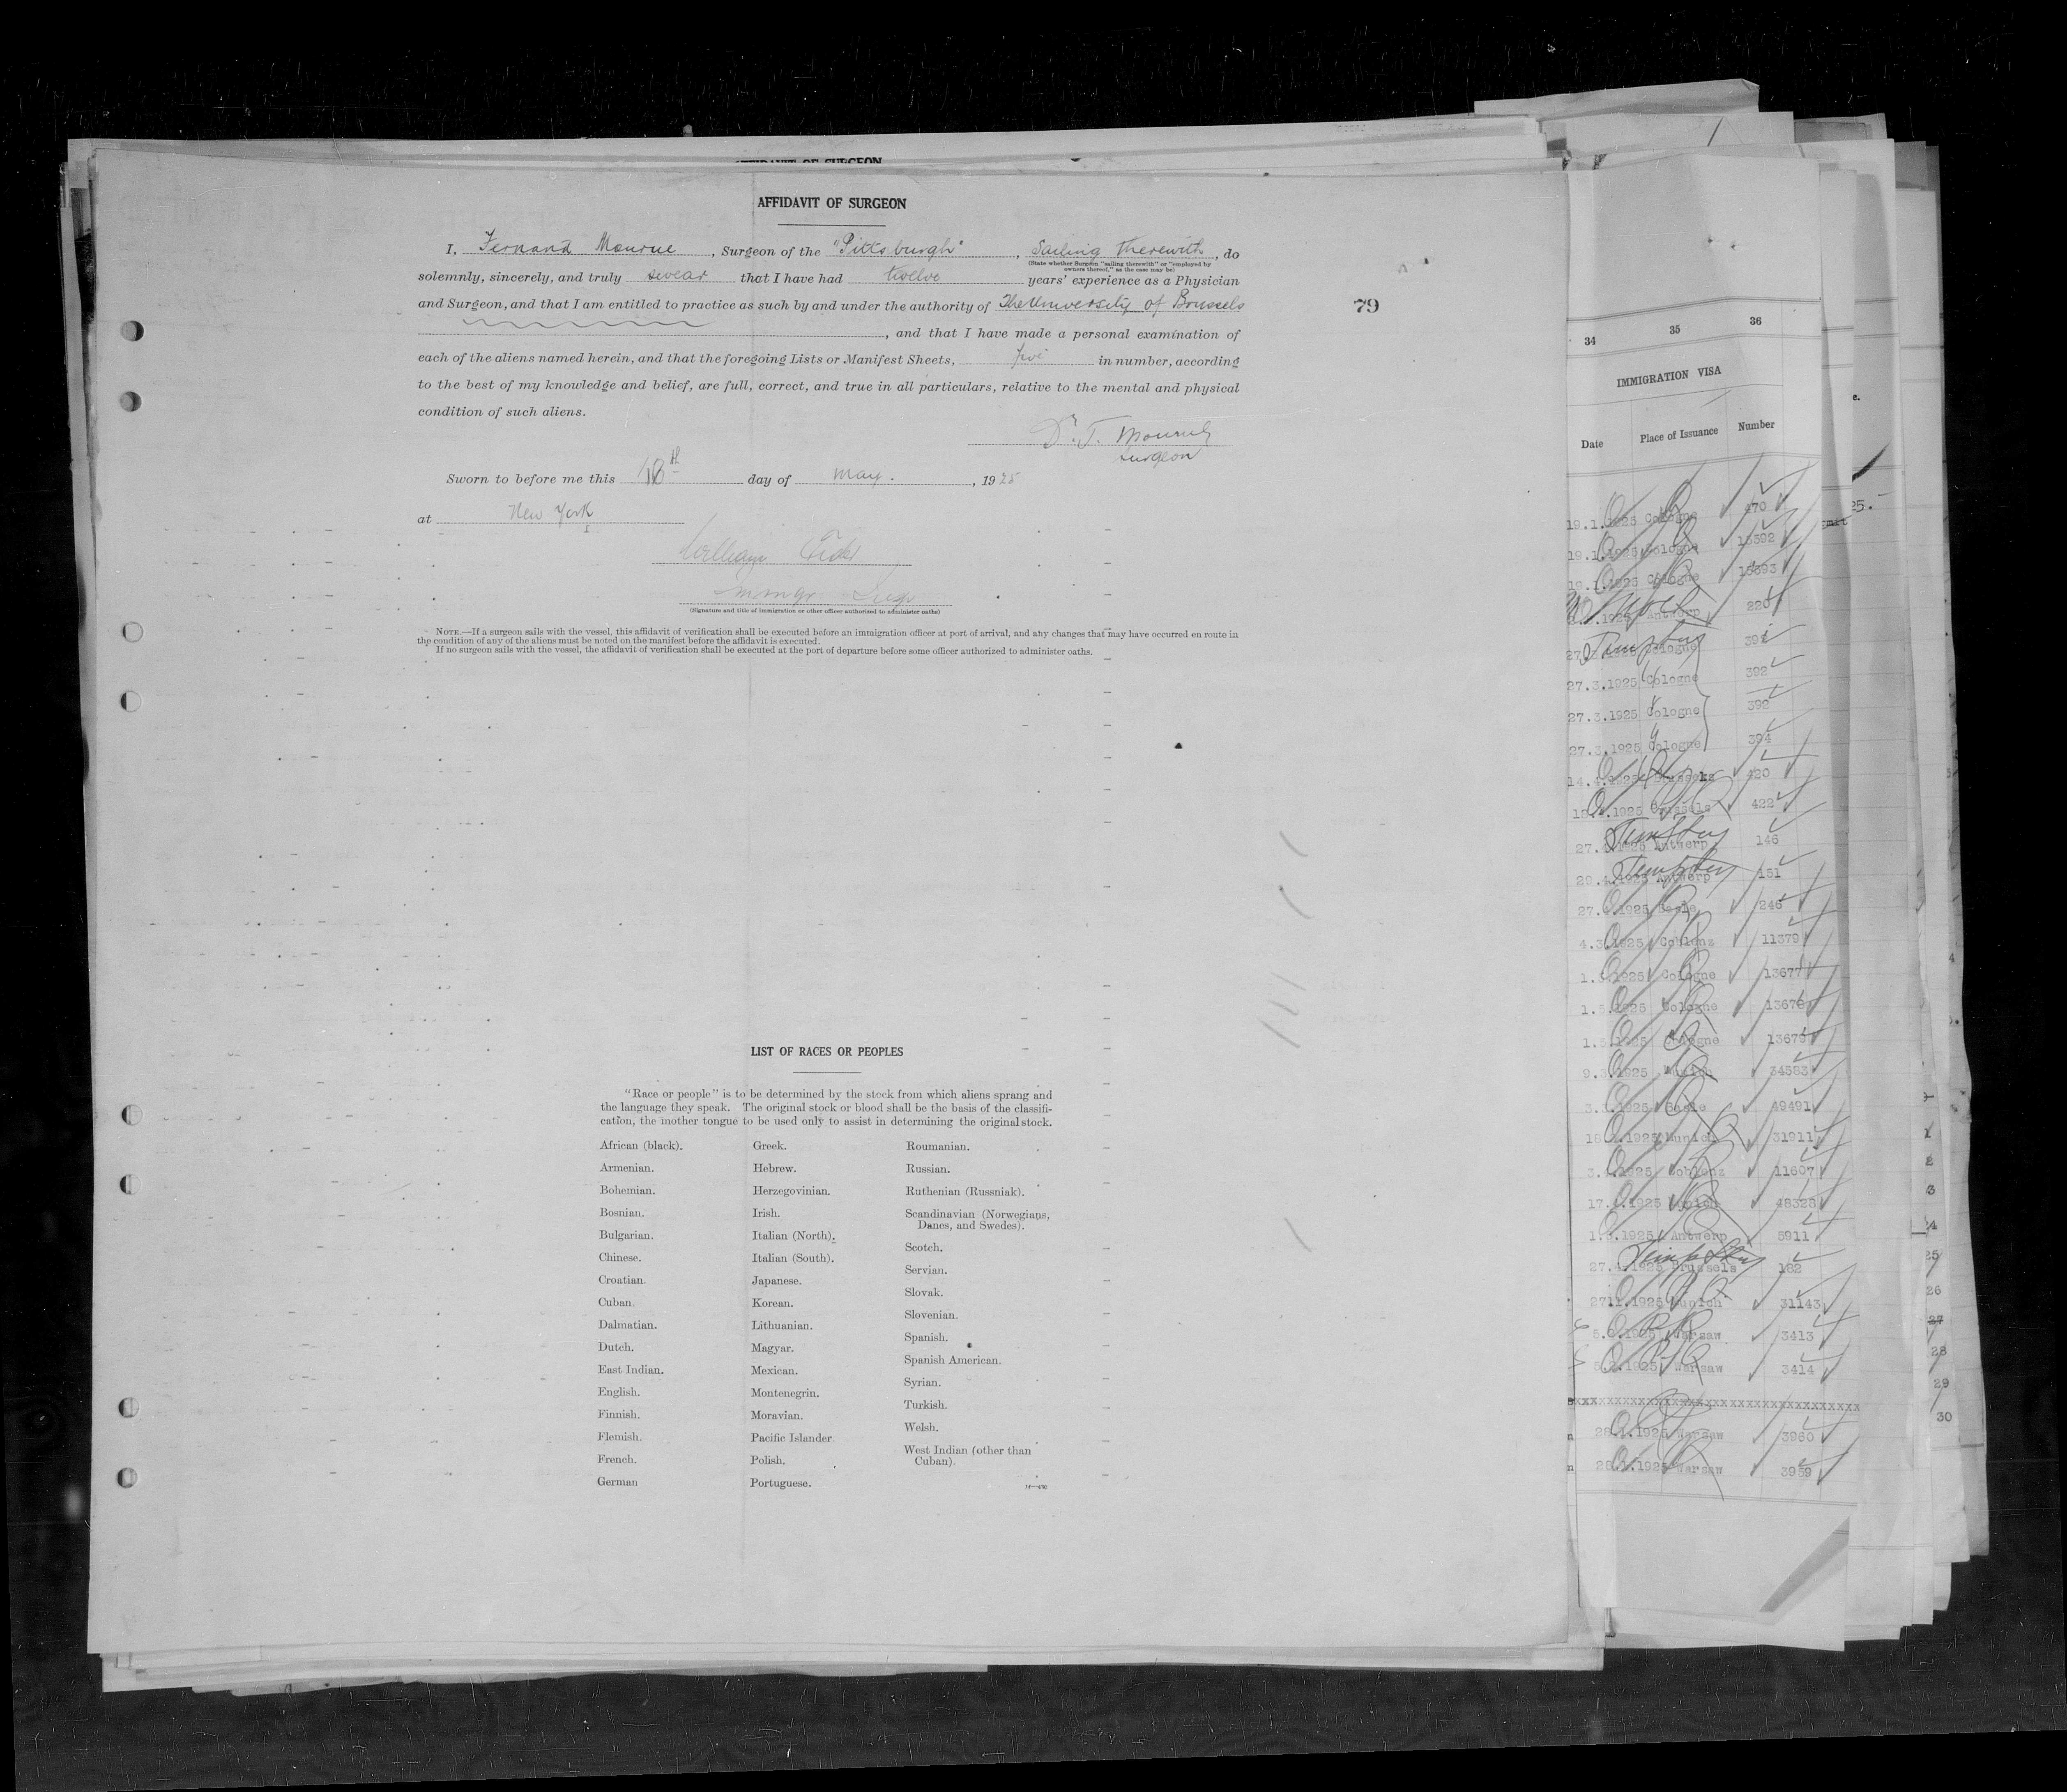 AFFIDAVIT OF SURGEON
I, Fernand Mourue, Surgeon of the "Pittsburgh", Sailing therewith, do
(State whether Surgeon "sailing therewith" or "employed by
owners thereof," as the case may be)
solemnly, sincerely, and truly swear that I have had twelve years' experience as a Physician
and Surgeon, and that I am entitled to practice as such by and under the authority of The University of Brussels
, and that I have made a personal examination of
each of the aliens named herein, and that the foregoing Lists or Manifest Sheets, five in number, according
to the best of my knowledge and belief, are full, correct, and true in all particulars, relative to the mental and physical
condition of such aliens.
Surgeon
Sworn to before me this 18th day of May. , 1925
at New York
William
(Signature and title of immigration or other officer authorized to administer oaths)
NOTE.—If a surgeon sails with the vessel, this affidavit of verification shall be executed before an immigration officer at port of arrival, and any changes that may have occurred en route in
the condition of any of the aliens must be noted on the manifest before the affidavit is executed.
If no surgeon sails with the vessel, the affidavit of verification shall be executed at the port of departure before some officer authorized to administer oaths.
79
LIST OF RACES OR PEOPLES
"Race or people" is to be determined by the stock from which aliens sprang and
the language they speak. The original stock or blood shall be the basis of the classifi-
cation, the mother tongue to be used only to assist in determining the original stock.
African (black).
Armenian.
Bohemian.
Bosnian.
Bulgarian.
Chinese.
Croatian.
Cuban.
Dalmatian.
Dutch.
East Indian.
English.
Finnish.
Flemish.
French.
German
Greek.
Hebrew.
Herzegovinian.
Irish.
Italian (North).
Italian (South).
Japanese.
Korean.
Lithuanian.
Magyar.
Mexican.
Montenegrin.
Moravian.
Pacific Islander
Polish.
Portuguese.
Roumanian.
Russian.
Ruthenian (Russniak).
Scandinavian (Norwegians,
Danes, and Swedes).
Scotch.
Servian.
Slovak.
Slovenian.
Spanish.
Spanish American.
Syrian.
Turkish.
Welsh.
West Indian (other than
Cuban).
34 35 36
IMMIGRATION VISA
Date Place of Issuance Number
19.1.1925 Cologne 470
19.1.1925 Cologne 15592
19.1.1925 Cologne 15593
1925 Antwerp 220
Cologne
27.3.1925 Cologne 392
27.3.1925 Cologne 392
27.3.1925 Cologne 394
14.4.1925 Brussels 420
1925 Brussels 422
1925 Antwerp 146
29.4.1925 Antwerp 151
1925 Basle 246
4.3.1925 Coblenz 11379
1925 Cologne 13677
1.5.1925 Cologne 13678
1925 Cologne 13679
9.3.1925 Munich 34583
1925 Basle 49491
1925 Munich 31911
1925 Coblenz 11607
1925 Munich 48328
1925 Antwerp 5911
27.4.1925 Brussels 182
1925 Munich 31143
1925 Warsaw 3413
1925 Warsaw 3414
1925 Warsaw 3960
1925 Warsaw 3959
25
26
27
28
29
30